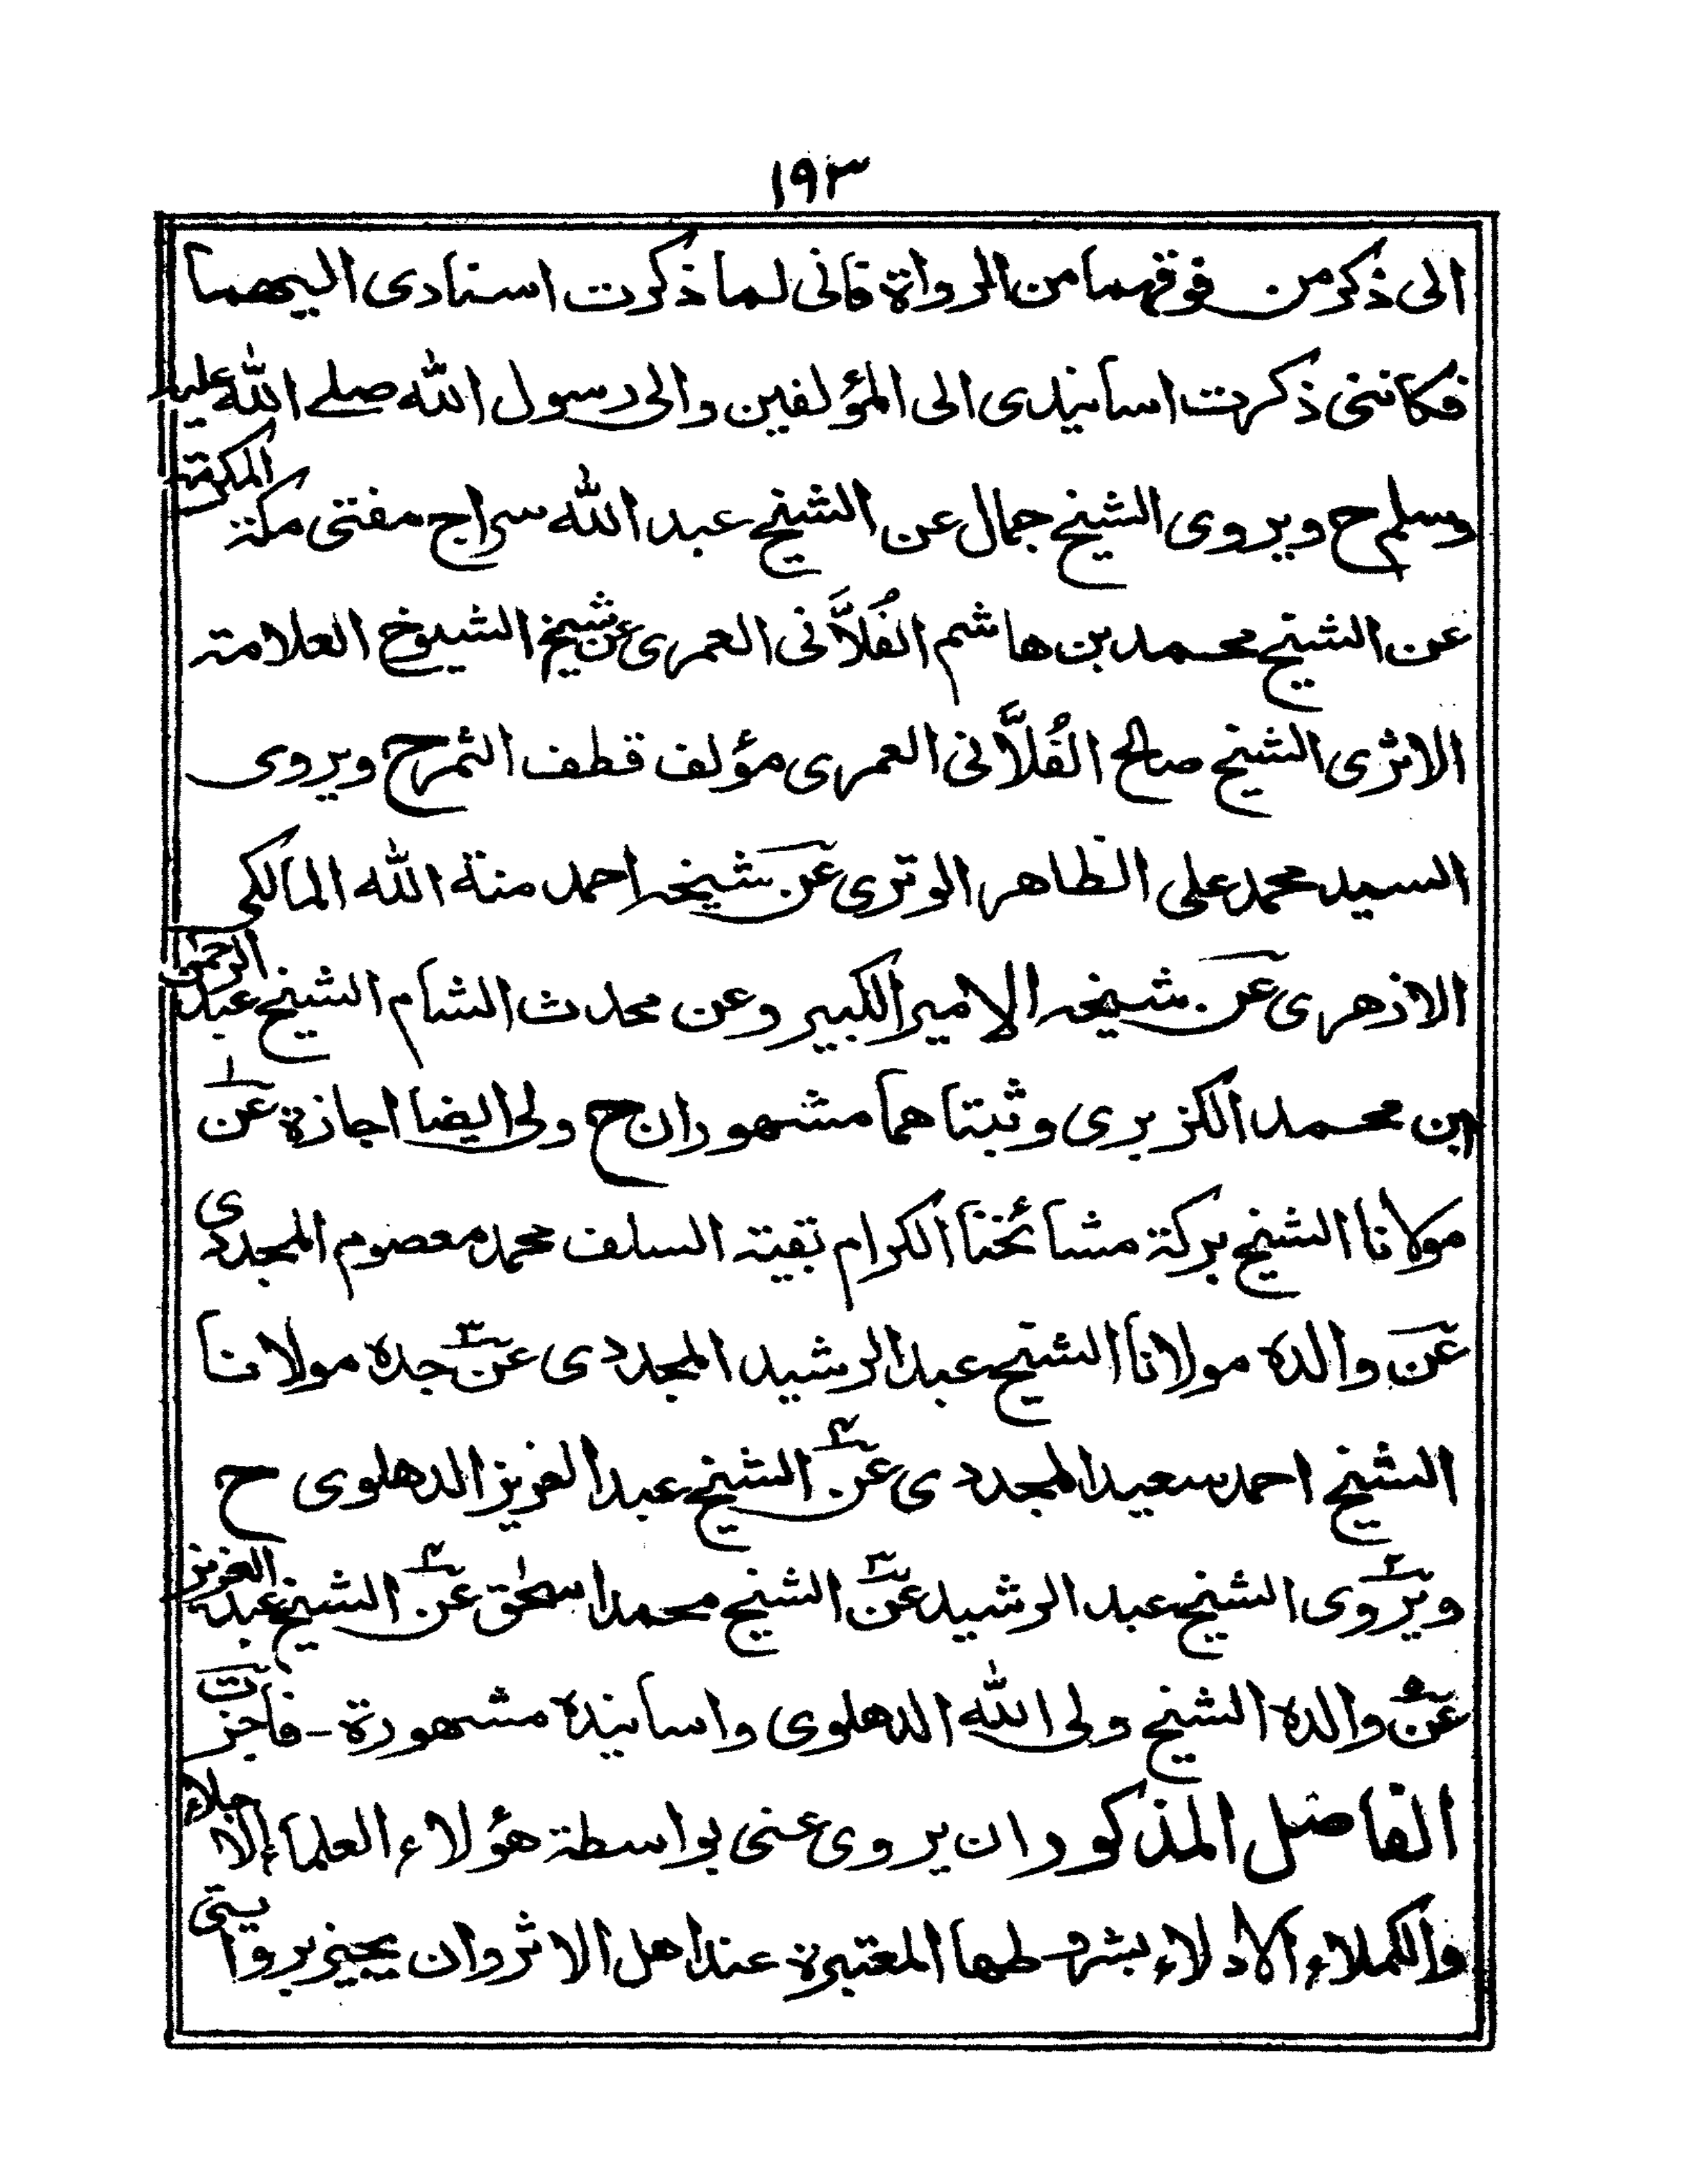 ١٩٣
الى ذكر من فوقهما من الرواة فانى لما ذكرت اسنادى اليهما
فكاننى ذكرت اسانيدى الى المؤلفين والى رسول الله صلے الله عليه
وسلم ح ويروى الشيخ جمال عن الشيخ عبد الله سراج مفتى مكة المكرمة
عن الشيخ محمد بن هاشم الفُلاَّنى العمرى عن شيخ الشيوخ العلامة
الاثرى الشيخ صالح الفُلاَّنى العمرى مؤلف قطف الثمر ح ويروى
السيد محمد على الظاهر الوترى عن شيخه احمد منة الله المالكى
الازهرى عن شيخه الامير الكبير وعن محدث الشام الشيخ عبد الرحمن
بن محمد الكزبرى وثبتاهما مشهوران ح ولى ايضا اجازة عن ١
مولانا الشيخ بركة مشائخنا الكرام بقية السلف محمد معصوم المجددى
عن والده مولانا الشيخ عبد الرشيد المجددى عن ٣ جده مولانا
الشيخ احمد سعيد المجددى عن ٤ الشيخ عبد العزيز الدهلوى ح
ويروى ٢ الشيخ عبد الرشيد عن ٣ الشيخ محمد اسحٰق عن ٤ الشيخ عبد العزيز
عن ٥ والده الشيخ ولى الله الدهلوى واسانيده مشهورة - فاجزت
الفاضل المذكور ان يروى عنى بواسطة هؤلاء العلماء الاجلاء
والكملاء الادلاء بشروطها المعتبرة عند اهل الاثر وان يجيز بروايتى